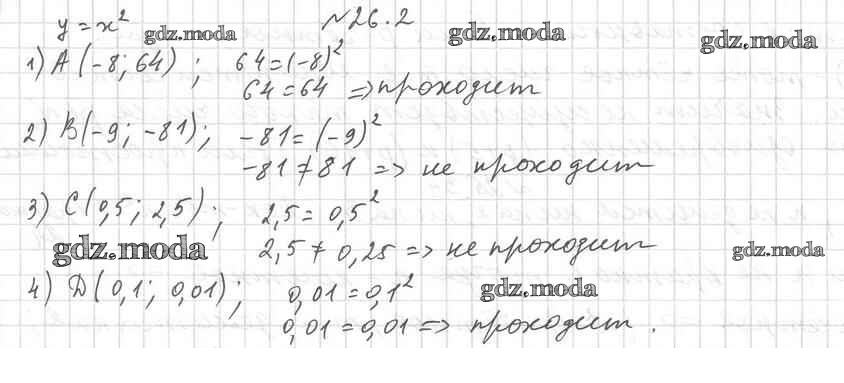 y = x² №26.2
gdz.moda gdz.moda gdz.moda
1) A (-8; 64) ; 64 = (-8)²
64 = 64 => проходит
2) B(-9; -81); -81 = (-9)²
-81 ≠ 81 => не проходит
3) C(0,5; 2,5); 2,5 = 0,5²
gdz.moda 2,5 ≠ 0,25 => не проходит gdz.moda
4) D(0,1; 0,01); 0,01 = 0,1² gdz.moda
0,01 = 0,01 => проходит.